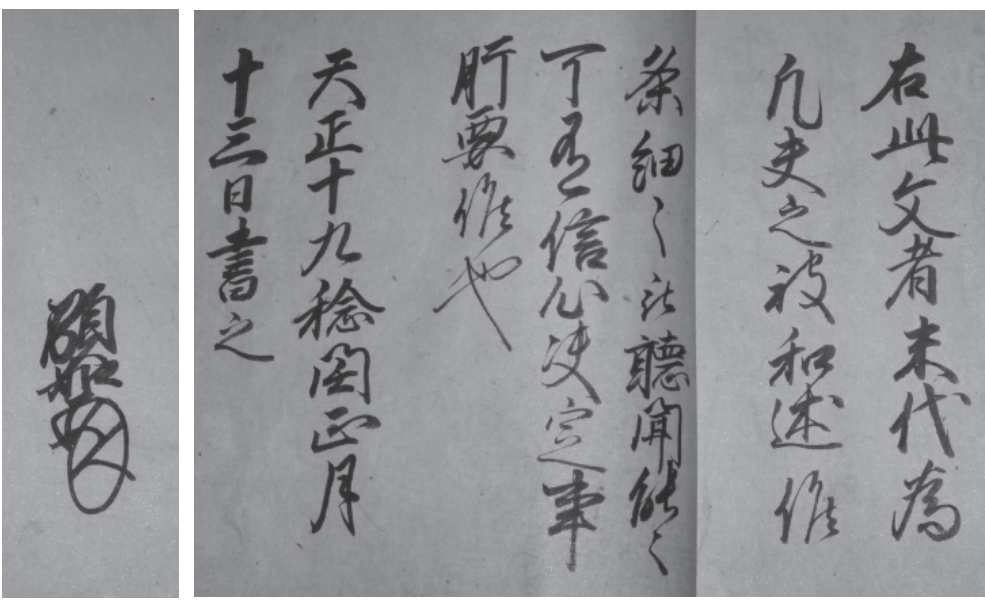 右此文者末代為
凡夫之被和述候
条細々被聴聞能々
可有信心决定事
肝要候也
天正十九稔閏正月
十三日書之
顕如